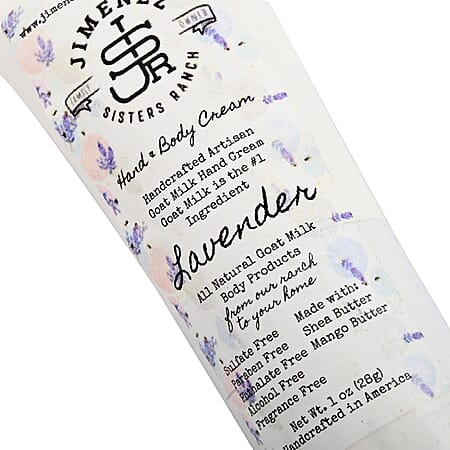 www.jimene
JIMENEZ
JSR
FAMILY OWNED
SISTERS RANCH
Hand & Body Cream
Handcrafted Artisan
Goat Milk Hand Cream
Goat Milk is the #1
Ingredient
Lavender
All Natural Goat Milk
Body Products
from our ranch
to your home
Sulfate Free
Paraben Free
Pthalate Free
Alcohol Free
Fragrance Free
Made with:
Shea Butter
Mango Butter
Net Wt. 1 oz (28g)
Handcrafted in America